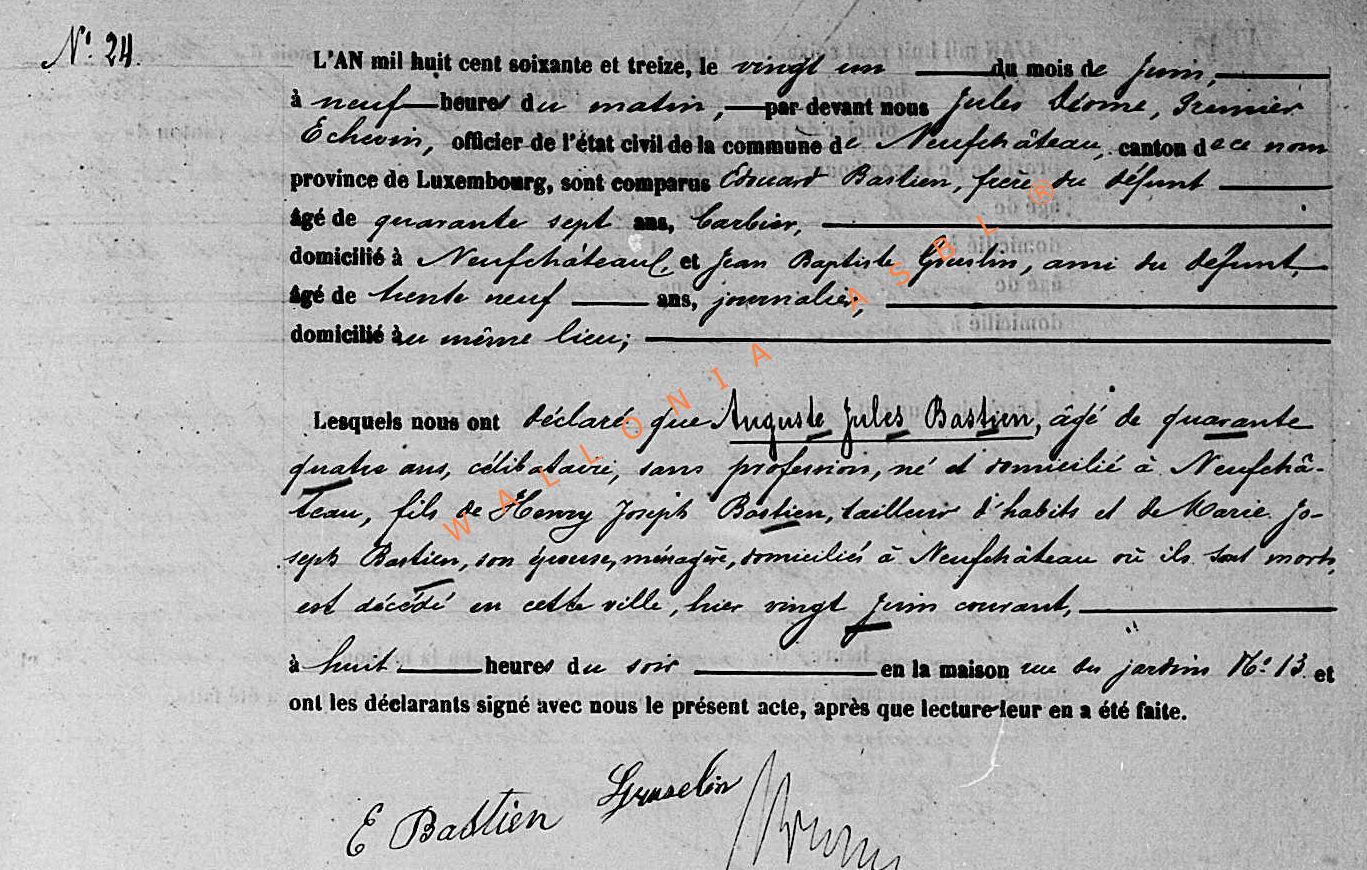 N° 24.
L'AN mil huit cent soixante et treize, le vingt un du mois de Juin,
à neuf heures du matin, par devant nous Jules Déome, Premier
Echevin, officier de l'état civil de la commune de Neufchâteau, canton de ce nom
province de Luxembourg, sont comparus Edouard Bastien, frère du défunt
âgé de quarante sept ans, barbier,
domicilié à Neufchâteau, et Jean Baptiste Gruslin, ami du defunt,
âgé de trente neuf ans, journalier,
domicilié au même lieu;
Lesquels nous ont déclaré que Auguste Jules Bastien, âgé de quarante
quatre ans, célibataire, sans profession, né et domicilié à Neufchâ-
teau, fils de Henry Joseph Bastien, tailleur d'habits et de Marie Jo-
seph Bastien, son épouse, ménagère, domiciliés à Neufchâteau où ils sont morts,
est décédé en cette ville, hier vingt Juin courant,
à huit heures du soir en la maison rue des jardins N° 13 et
ont les déclarants signé avec nous le présent acte, après que lecture leur en a été faite.
E Bastien
WALLONIA ASBL ®